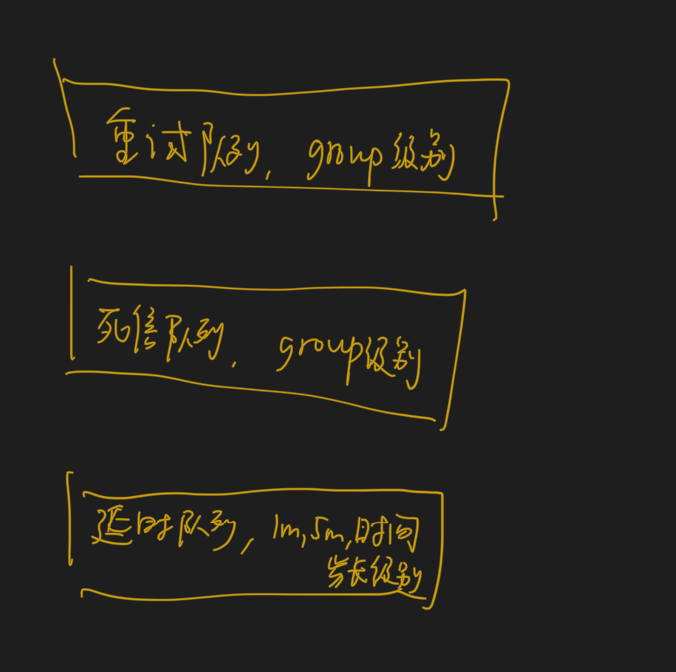 重试队列, group级别
死信队列, group级别
延时队列, 1m,5m,时间
长级别